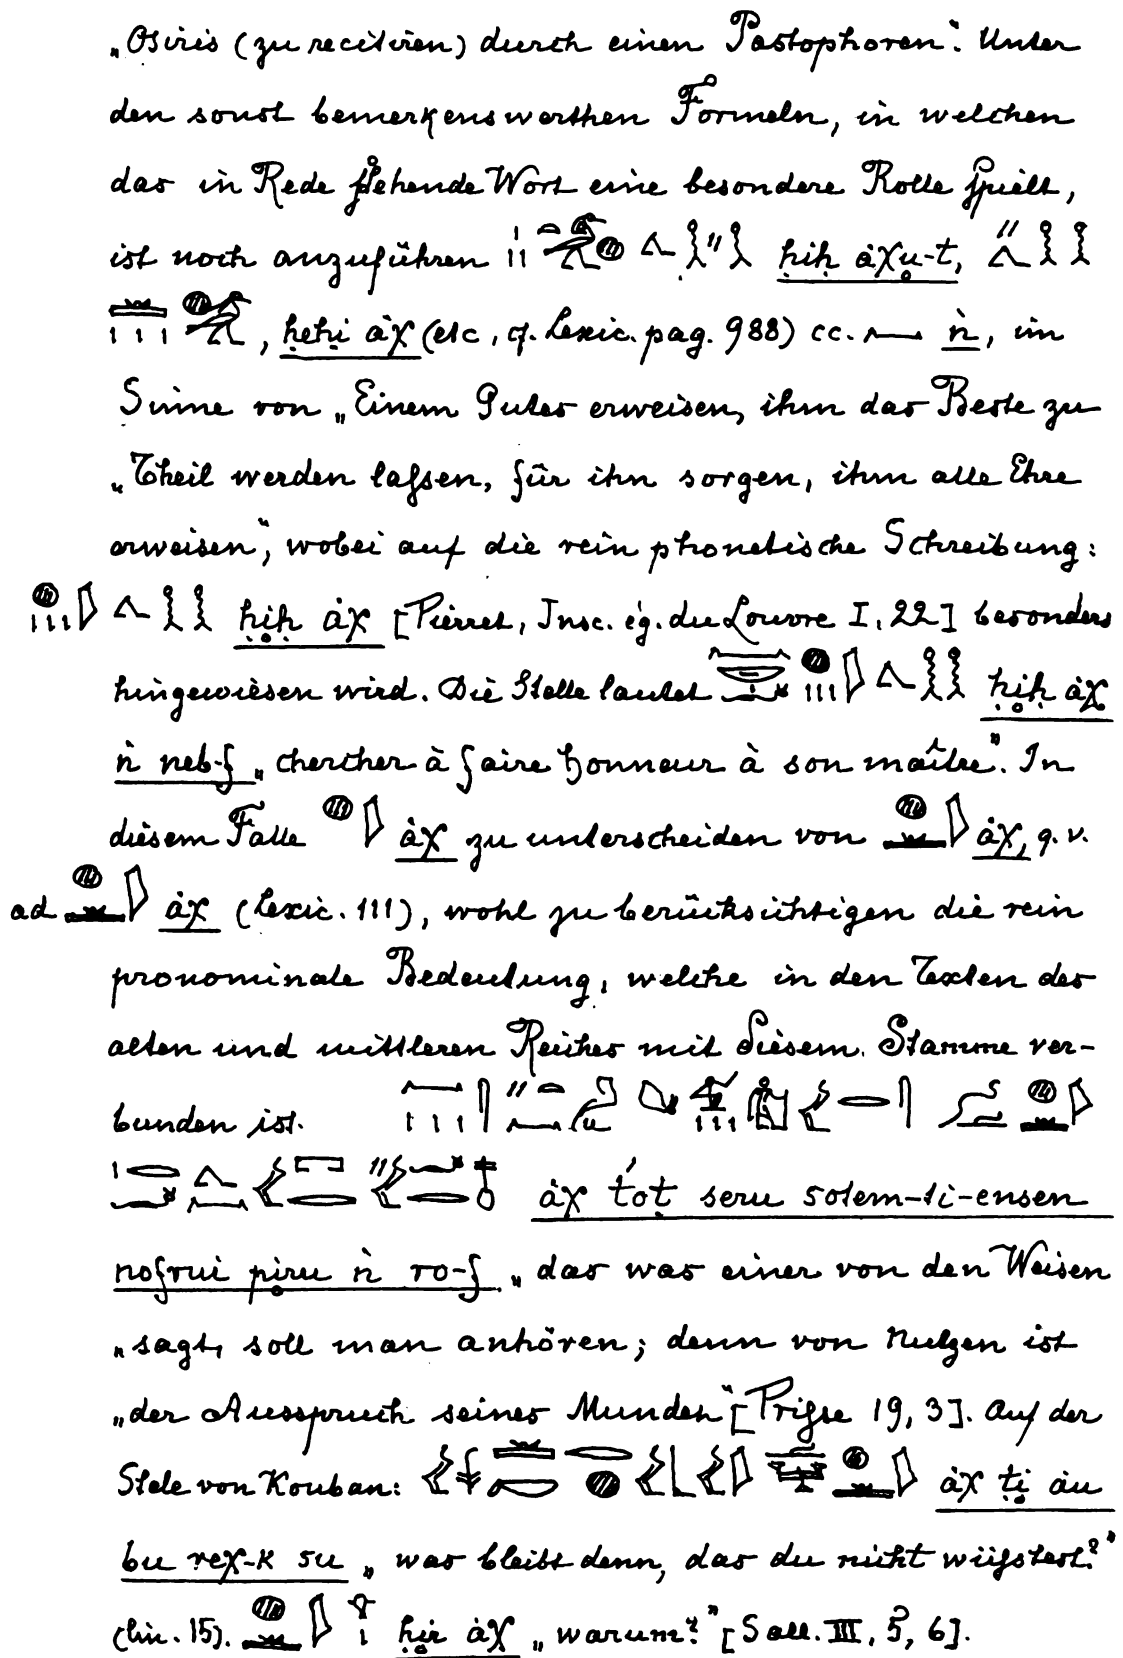 „Osiris (zu recitiren) durch einen Pastophoren“. Unter
den sonst bemerkenswerthen Formeln, in welchen
das in Rede stehende Wort eine besondere Rolle spielt,
ist noch anzuführen ḥiḥ ȧχu-t,
ḥeḥi ȧχ (etc, cf. Lexic. pag. 988) cc. ṅ, im
Sinne von „Einem Gutes erweisen, ihm das Beste zu
„Theil werden lassen, für ihn sorgen, ihm alle Ehre
erweisen“, wobei auf die rein phonetische Schreibung:
ḥiḥ ȧχ [Pierret, Insc. ég. du Louvre I, 22] besonders
hingewiesen wird. Die Stelle lautet ḥiḥ ȧχ
ṅ neb-f „chercher à faire honneur à son maître“. In
diesem Falle ȧχ zu unterscheiden von ȧχ, q. v.
ad ȧχ (Lexic. 111), wohl zu berücksichtigen die rein
pronominale Bedeutung, welche in den Texten des
alten und mittleren Reiches mit diesem Stamme ver-
bunden ist.
ȧχ seru sotem-ti-ensen
nofrui piru ṅ ro-f „das was einer von den Weisen
„sagt, soll man anhören; denn von Nutzen ist
„der Ausspruch seines Mundes“ [Prisse 19, 3]. Auf der
Stele von Kouban: ȧχ ti ȧu
bu reχ-k su „was bleibt denn, das du nicht wüsstest?“
(lin. 15). ḥir ȧχ „warum?“ [Sall. III, 5, 6].